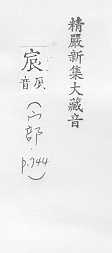 精嚴新集大藏音
宸
音辰
(宀部.
p.744)